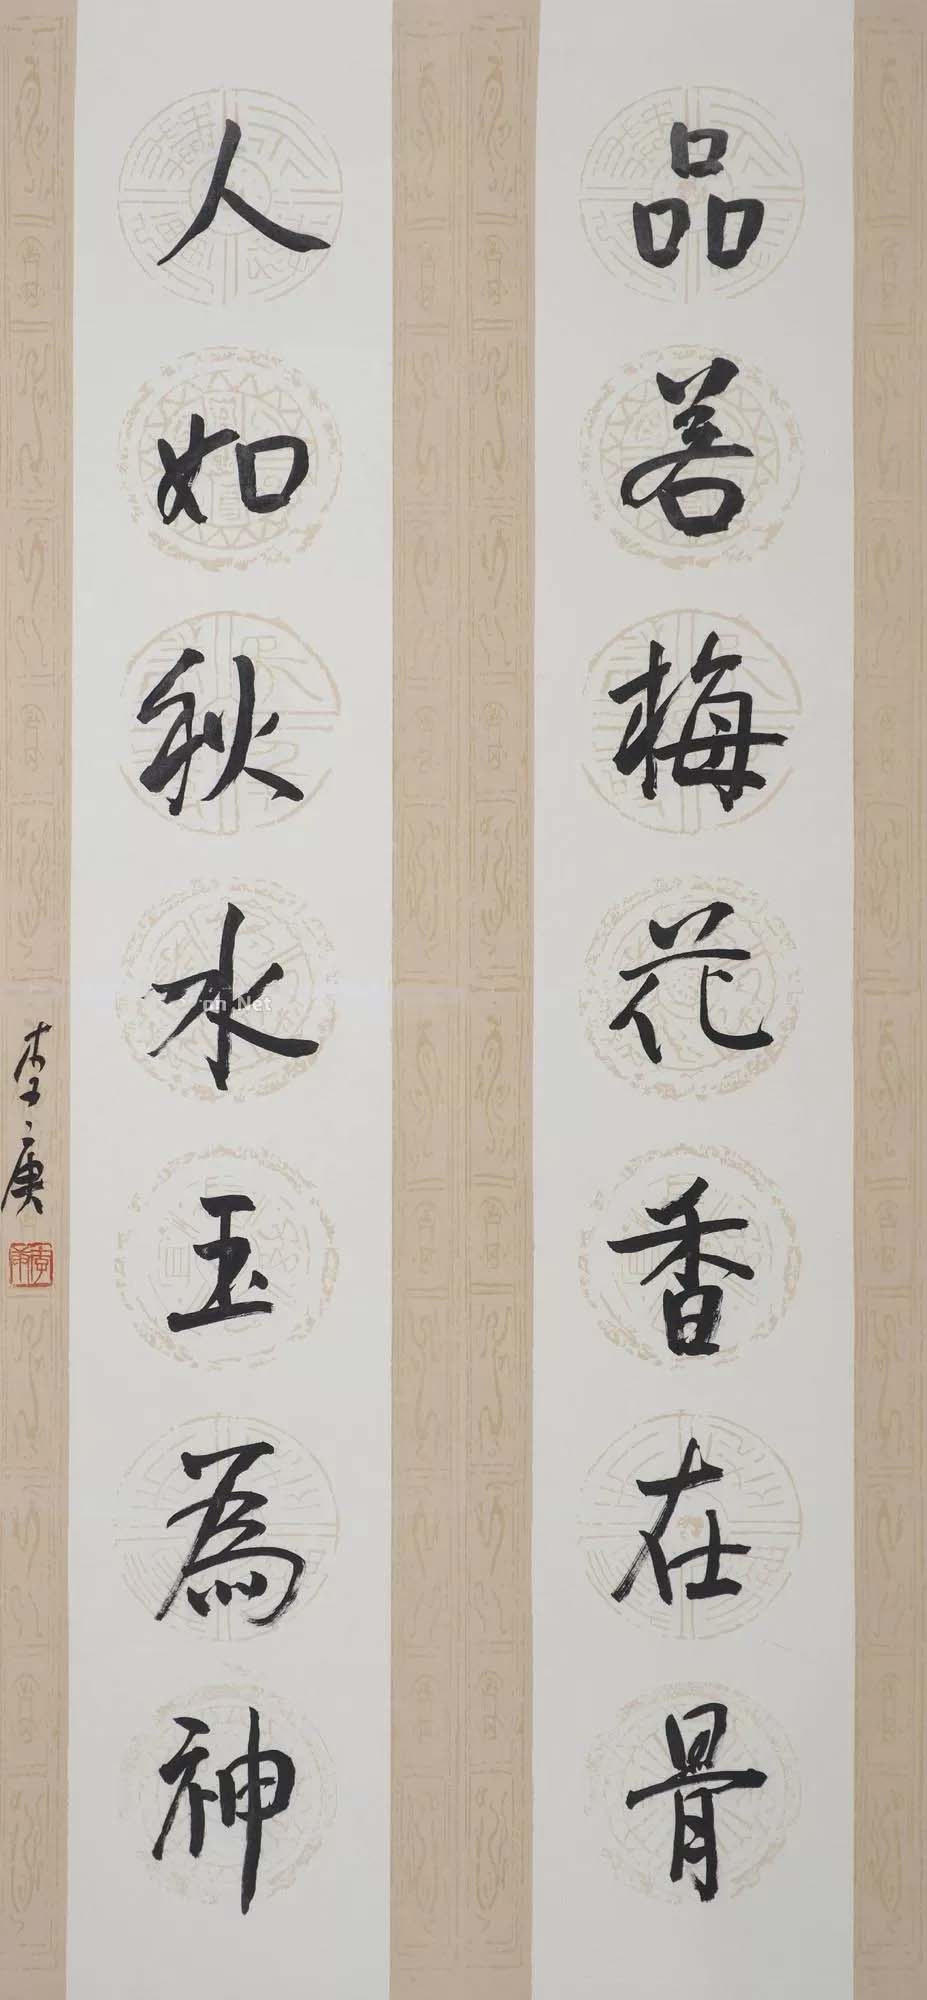 品若梅花香在骨
人如秋水玉為神
李庚